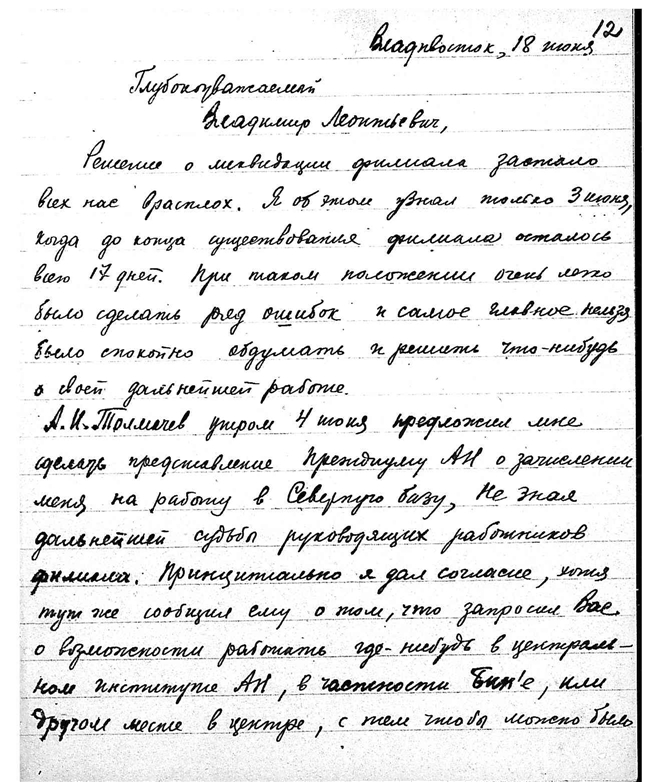 12
Владивосток, 18 июня
Глубокоуважаемый
Владимир Леонтьевич,
Решение о ликвидации филиала застало
всех нас врасплох. Я об этом узнал только 3 июня,
когда до конца существования филиала осталось
всего 17 дней. При таком положении очень легко
было сделать ряд ошибок и самое главное нельзя
было спокойно обдумать и решить что-нибудь
о своей дальнейшей работе.
А.И. Толмачев утром 4 июня предложил мне
сделать представление Президиуму АН о зачислении
меня на работу в Северную базу, не зная
дальнейшей судьбы руководящих работников
филиала. Принципиально я дал согласие, хотя
тут же сообщил ему о том, что запросил Вас
о возможности работать где-нибудь в централь-
ном институте АН, в частности Бин'е, или
другом месте в центре, с тем чтобы можно было